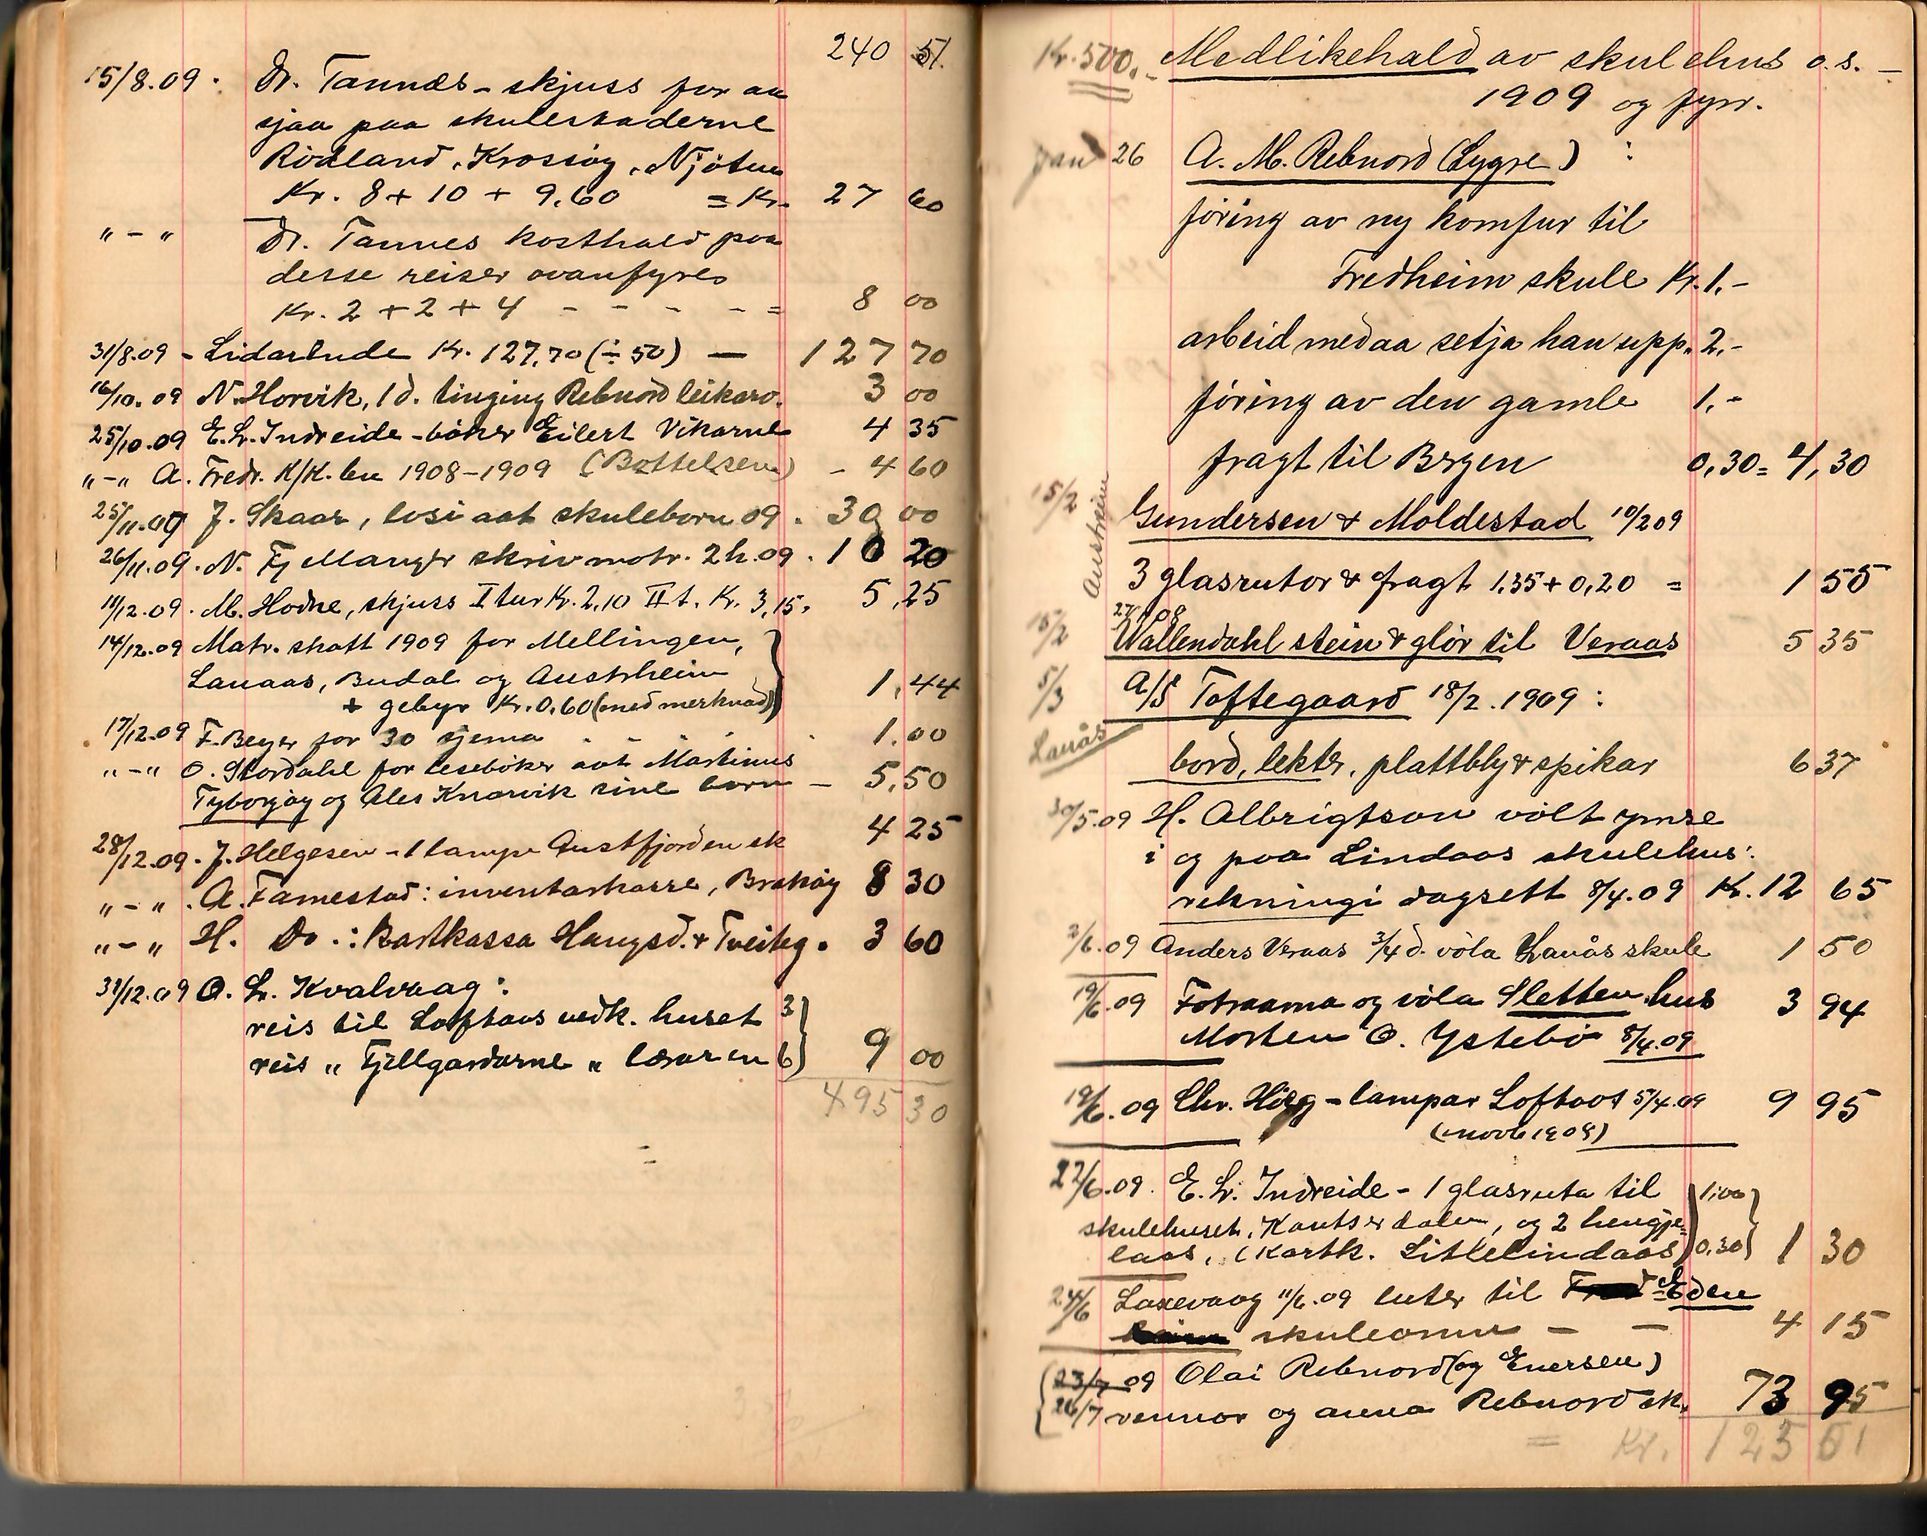 240 51.
15/8.09 : Dr. Tannæs - skjuss for aa
sjaa paa skulestaderne
Rödland, Krossöy, Njöten
Kr. 8 + 10 + 9,60 = Kr. 27 60
" - " Dr. Tannes kosthald paa
desse reiser ovanfyre
Kr. 2 + 2 + 4 - - - - = 8 00
31/8.09 - Lidarende Kr. 127,70 (÷ 50) — 127 70
16/10.09 N. Horvik, 1 d. tinging Rebnord leikarv. 3 00
25/10.09 E. Lr. Indreide - böker Eilert Vikarne 4 35
" - " A. Fredr. K/K. 1908-1909 (Bottelsen) - 4 60
25/11.09 J. Skaar, losi aat skuleborn 09 . 30 00
26/11.09 . N. Fj Manger skrivmatr. 2 h. 09 . 10 20
11/12.09 . M. Hodne, skjuss I tur Kr. 2,10 II t. Kr. 3,15. 5,25
14/12.09 Matr. skatt 1909 for Mellingen,
Lanaas, Budal og Austrheim
+ gebyr Kr. 0,60 (med merknad) 1,44
17/12.09 F. Beyer for 30 sjema 1.00
" - " O. Stordahl for lesebøker aat Martinus
Tyborgøy og Ales Knarvik sine born - 5,50
28/12.09 . J. Helgesen - 1 lampe Austfjorden sk 4 25
" - " . A. Famestad : inventarkasse, Brakøy 8 30
" - " H. Do. : Kartkassa Haugsd. + Tveiteg. 3 60
31/12.09 O. Lr. Kvalvaag :
reis til Loftaas vedk. huset 3
reis " Fjellgardarne " læraren 6 9 00
495 30
Kr. 500,- Medlikehald av skulehus o.s. -
1909 og fyrr.
Jan 26 A. M. Rebnord (Lygre) :
føring av ny komfur til
Fredheim skule Kr. 1.-
arbeid med aa setja han upp " 2.-
føring av den gamle 1.-
fragt til Bergen 0,30 = 4,30
15/2 Austreim Gundersen & Moldestad 10/2 09
3 glasrutor & fragt 1,35 + 0,20 = 1 55
27/ 08
15/2 Wallendahl stein & glør til Veraas 5 35
5/3 A/S Toftegaard 18/2. 1909 :
Lanås
bord, lekter, plattbly & spikar 6 37
30/5.09 H. Albrigtson vølt ymse
i og paa Lindaas skulehus :
rekningi dagsett 8/4.09 Kr. 12 65
2/6.09 Anders Veraas 3/4 d. vøla Lanås skule 1 50
19/6.09 Fotraama og vøla Sletten hus 3 94
Morten O. Ystebø 8/4.09
19/6.09 Chr. Høeg - lampar Loftaas 5/4.09 9 95
(novb 1908)
22/6.09. E. Lr. Indreide - 1 glasruta til 1,00
skulehuset, Kautserdalen, og 2 hengje=
laas, (Kartk. Litlelindaas) 0,30 1 30
24/6 Laxevaag 11/6.09 luter til Eden
skuleomn - - 4 15
23/7 09 Olai Rebnord (og Enersen)
26/7 rennor og anna Rebnord sk. 73 95
= Kr. 125 61